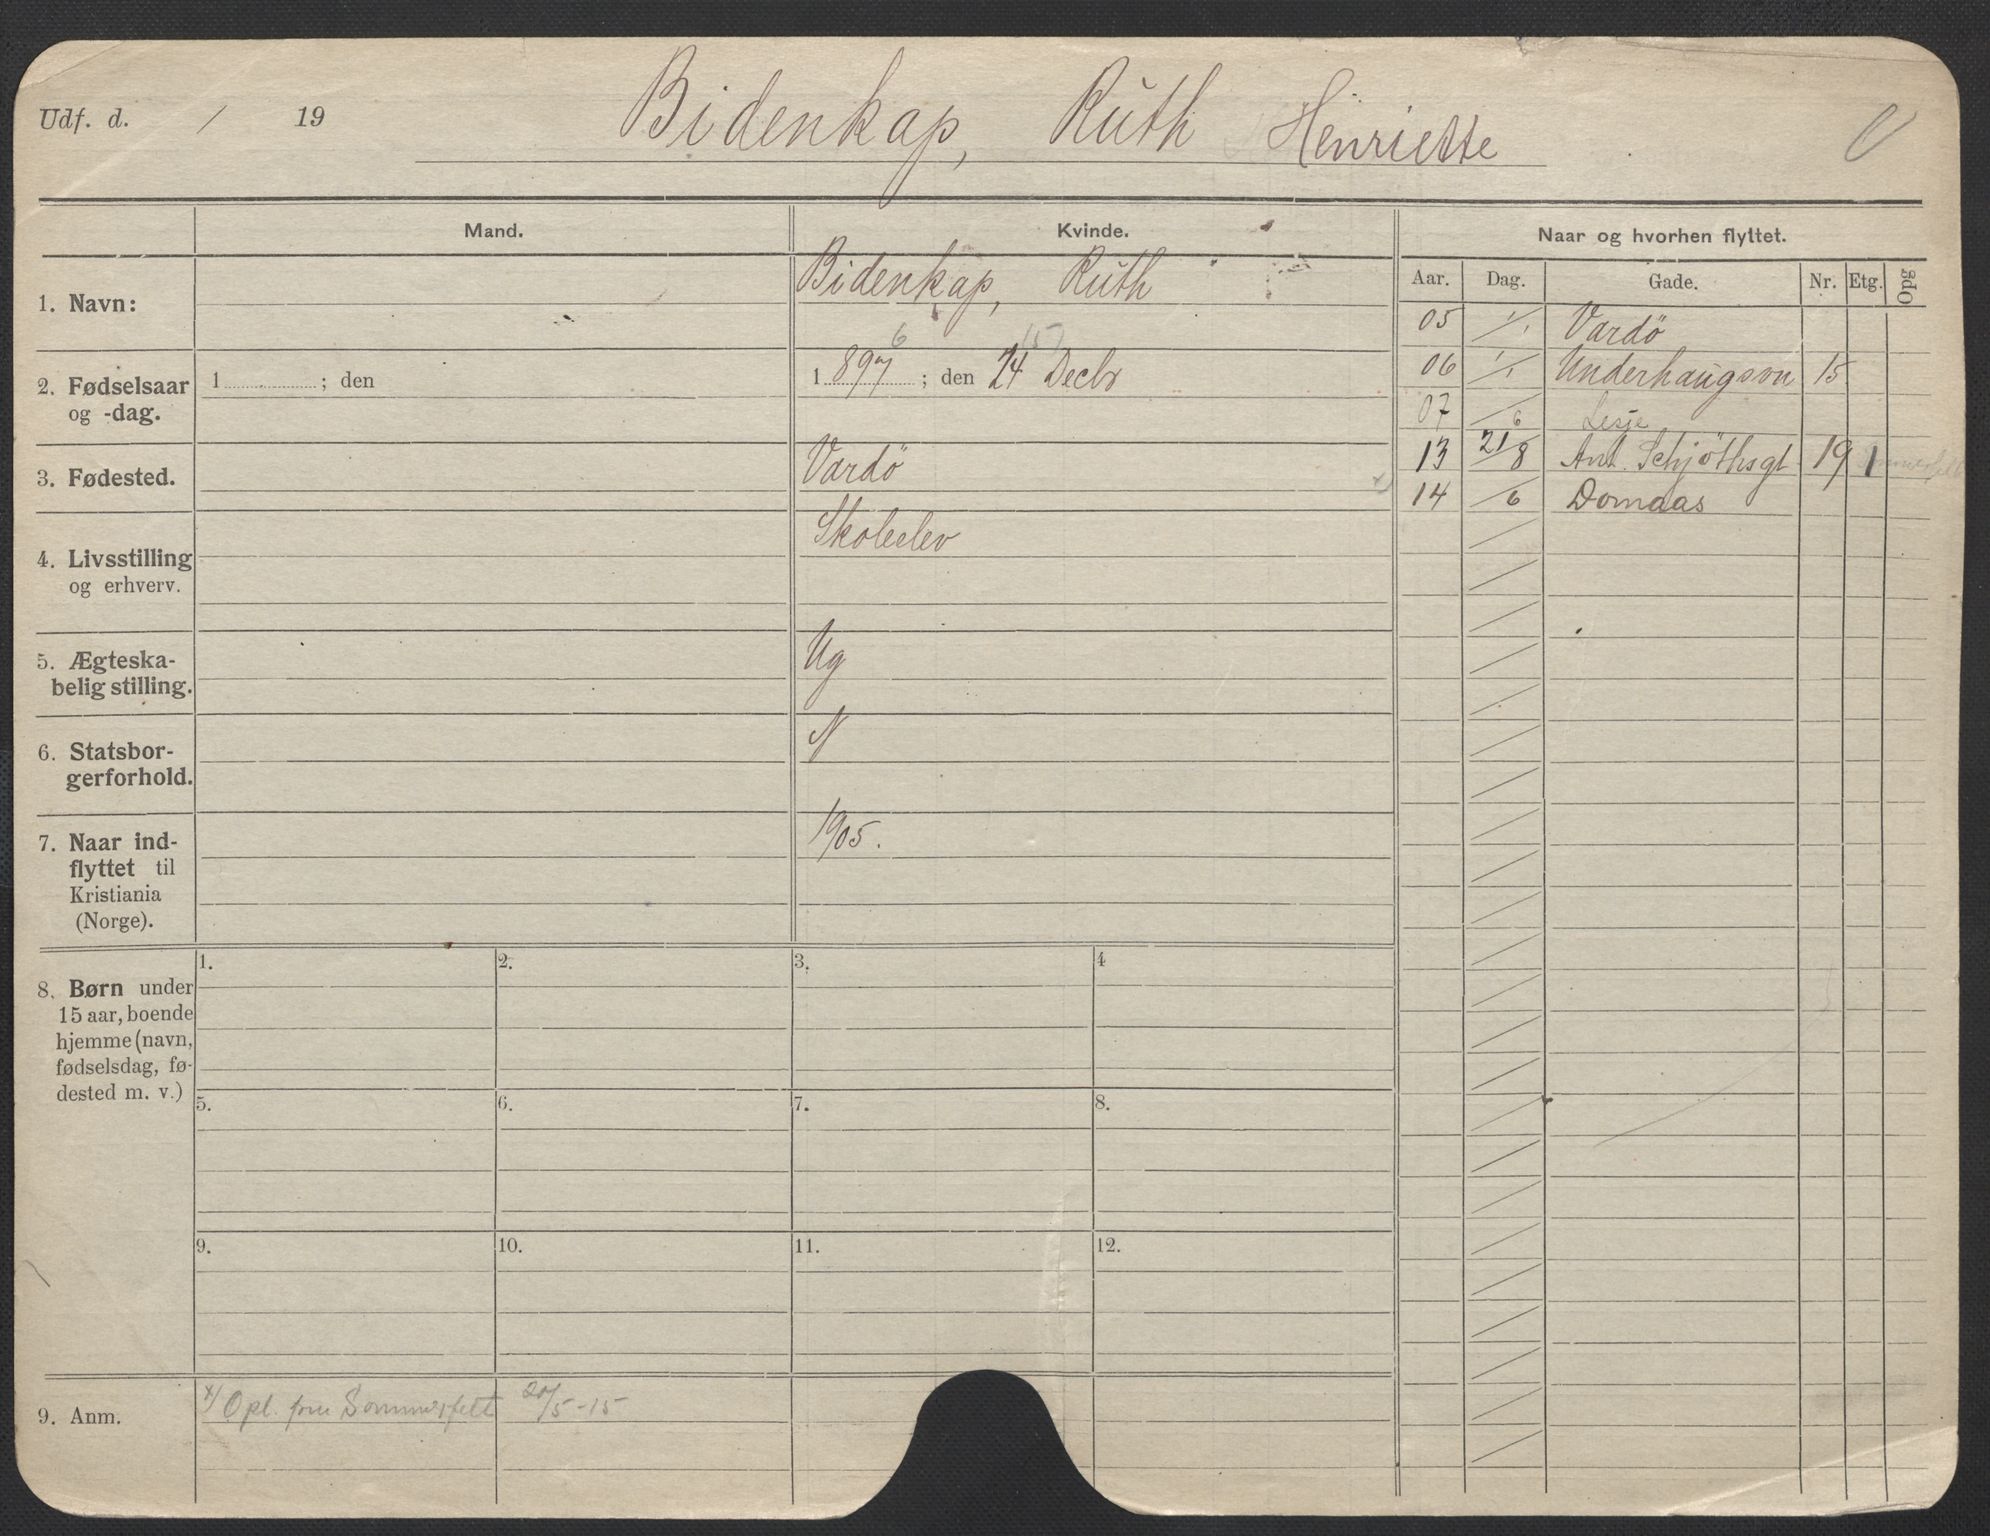 Udf. d. / 19
Bidenkap, Ruth Henriette
Mand.
Kvinde.
Naar og hvorhen flyttet.
Aar. Dag. Gade. Nr. Etg. Opg
1. Navn:
Bidenkap, Ruth
2. Fødselsaar
og -dag.
1 ; den
6 15
1 897 ; den 24 Decbr
3. Fødested.
Vardö
4. Livsstilling
og erhverv.
Skoleelev
5. Ægteska-
belig stilling.
Ug
6. Statsbor-
gerforhold.
N
7. Naar ind-
flyttet til
Kristiania
(Norge).
1905.
05 1/1 Vardö
06 1/1 Underhaugsvn 15
07 /6 Lesje
13 21/8 Ant. Schjöthsgt 19 1
x) 14 /6 Domaas
8. Børn under
15 aar, boende
hjemme (navn,
fødselsdag, fø-
dested m. v.)
1. 2. 3. 4
5. 6. 7. 8.
9. 10. 11. 12.
9. Anm.
x) Opl. fru Sommerfelt 20/5-15